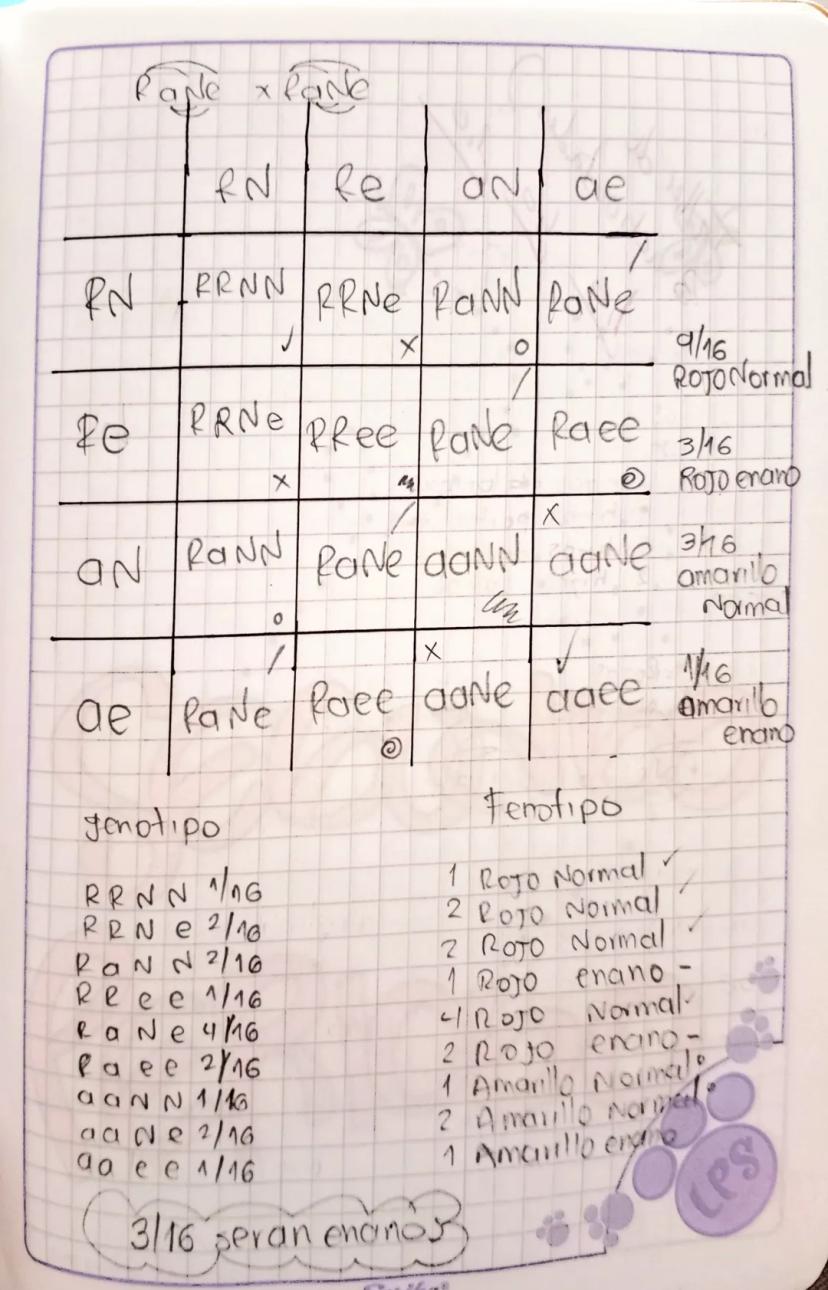 RaNe x RaNe
RN Re aN ae
RN RRNN RRNe RaNN RaNe
9/16
Rojo Normal
Re RRNe RRee RaNe Raee
3/16
Rojo enano
aN RaNN RaNe aaNN aaNe
3/16
amarillo
Normal
ae RaNe Raee aaNe aaee
1/16
Amarillo
enano
genotipo
Fenotipo
RRNN 1/16
1 Rojo Normal
RRNe 2/16
2 Rojo Normal
RaNN 2/16
2 Rojo Normal
RRee 1/16
1 Rojo enano -
RaNe 4/16
4 Rojo Normal
Raee 2/16
2 Rojo enano -
aaNN 1/16
1 Amarillo Normal
aaNe 2/16
2 Amarillo Normal
aaee 1/16
1 Amarillo enano
LPS
3/16 seran enanos